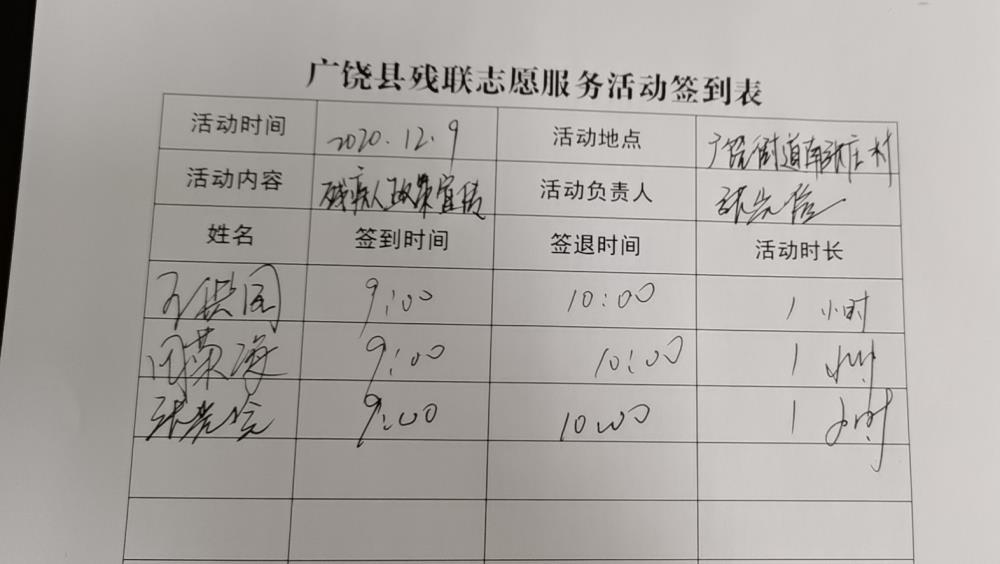 广饶县残联志愿服务活动签到表
活动时间 2020.12.9 活动地点 广饶街道南张庄村
活动内容 残疾人政策宣传 活动负责人 张
姓名 签到时间 签退时间 活动时长
9:00 10:00 1 小时
9:00 10:00 1 小时
张 9:00 10:00 1 小时